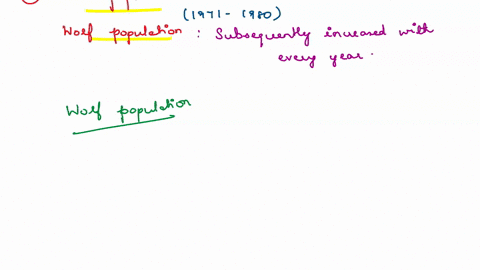 (1971 - 1980)
Wolf population : Subsequently increased with
every year.
Wolf population